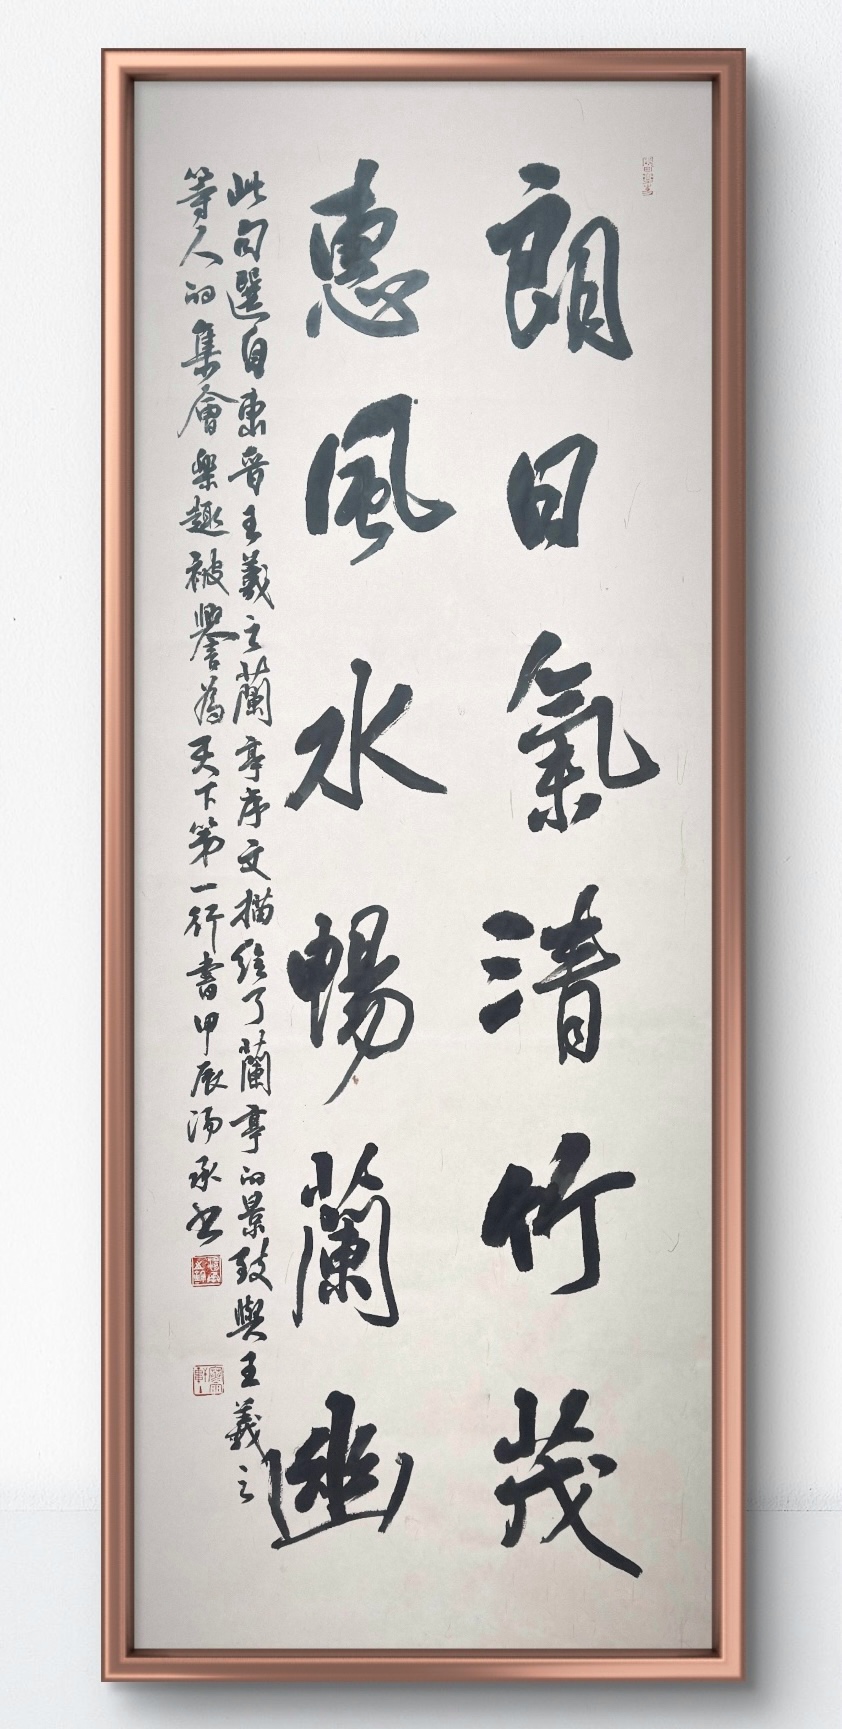 朗日氣清竹茂
惠風水暢蘭幽
此句選自東晉王羲之蘭亭序文描繪了蘭亭的景致與王羲之
等人的集會樂趣被譽為天下第一行書甲辰湯承書